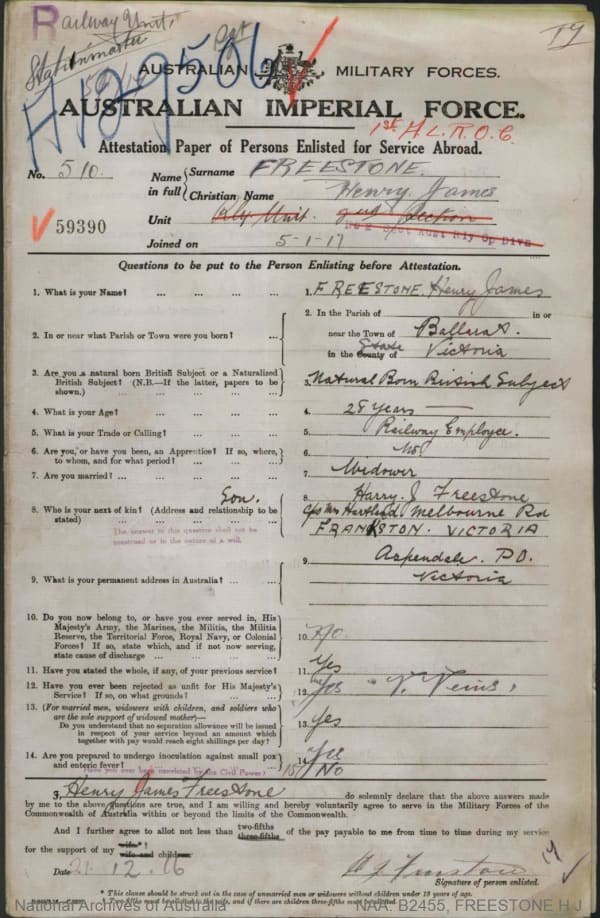 Railway Unit
Stationmaster
19
H129506
AUSTRALIAN MILITARY FORCES.
AUSTRALIAN IMPERIAL FORCE.
1st A L. R. O. C.
Attestation Paper of Persons Enlisted for Service Abroad.
No. 510. Name in full { Surname FREESTONE.
Christian Name Henry James
59390 Unit Rly Unit. Section
Joined on 5-1-17
Questions to be put to the Person Enlisting before Attestation.
1. What is your Name? ... ... ... ... 1. FREESTONE. Henry James
2. In or near what Parish or Town were you born? ... 2. In the Parish of in or
near the Town of Ballarat.
in the County of State Victoria
3. Are you a natural born British Subject or a Naturalized British Subject? (N.B.—If the latter, papers to be shown.) ... 3. Natural Born British Subject
4. What is your Age? ... ... ... ... 4. 28 Years
5. What is your Trade or Calling? ... ... ... 5. Railway Employee.
6. Are you, or have you been, an Apprentice? If so, where, to whom, and for what period? ... ... 6. No
7. Are you married? ... ... ... ... 7. Widower
8. Who is your next of kin? (Address and relationship to be stated) ... Son. 8. Harry. J Freestone
c/o Mrs Hartland Melbourne Rd
FRANKSTON. VICTORIA
The answer to this question shall not be
construed as in the nature of a will.
9. What is your permanent address in Australia? ... ... 9. Aspendale. P.O.
Victoria
10. Do you now belong to, or have you ever served in, His Majesty's Army, the Marines, the Militia, the Militia Reserve, the Territorial Force, Royal Navy, or Colonial Forces? If so, state which, and if not now serving, state cause of discharge ... 10. No.
11. Have you stated the whole, if any, of your previous service? 11. Yes
12. Have you ever been rejected as unfit for His Majesty's Service? If so, on what grounds? ... 12. Yes "V. Veins"
13. (For married men, widowers with children, and soldiers who are the sole support of widowed mother)—
Do you understand that no separation allowance will be issued in respect of your service beyond an amount which together with pay would reach eight shillings per day? 13. Yes
14. Are you prepared to undergo inoculation against small pox and enteric fever? ... 14. Yes
Have you ever been convicted by the Civil Power? 15. No
I, Henry James Freestone do solemnly declare that the above answers made
by me to the above questions are true, and I am willing and hereby voluntarily agree to serve in the Military Forces of the
Commonwealth of Australia within or beyond the limits of the Commonwealth.
And I further agree to allot not less than two-fifths three-fifths of the pay payable to me from time to time during my service
for the support of my wife* wife and children
Date 21.12.16 H J Freestone
Signature of person enlisted.
* This clause should be struck out in the case of unmarried men or widowers without children under 18 years of age.
† Two-fifths must be allotted to the wife, and if there are children three-fifths must be allotted.
National Archives of Australia NAA: B2455, FREESTONE H J